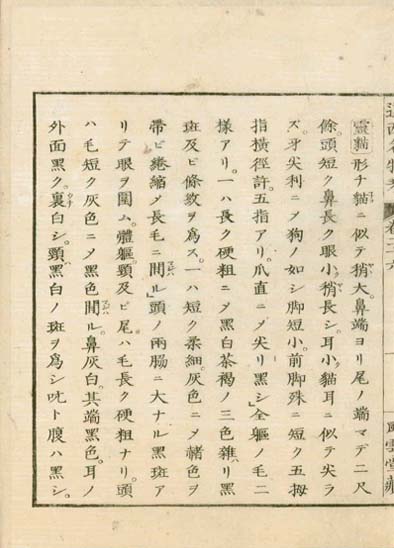 靈猫形チ猫ニ似テ稍大。鼻端ヨリ尾ノ端マデ二尺
餘。頭短ク鼻長ク眼小稍長シ。耳小ク猫耳ニ似テ尖ラ
ズ。牙尖利ニメ狗ノ如シ脚短小。前脚殊ニ短ク五拇
指横徑許。五指アリ。爪直ニメ尖リ黑シ」全軀ノ毛二
樣アリ。一ハ長ク硬粗ニメ黑白茶褐ノ三色雜リ黑
斑及ビ條紋ヲ爲ス。一ハ短ク柔細。灰色ニメ褚色ヲ
帶ビ捲縮メ長毛ニ間ル」頭ノ兩腸ニ大ナル黑斑ア
リテ眼ヲ圍ム。體軀頸及ビ尾ハ毛長ク硬粗ナリ。頭
ハ毛短ク灰色ニメ黑色間ル。鼻灰白。其端黑色。耳ノ
外面黑ク。裏白シ。頸黑白ノ斑ヲ爲シ吭ト腹ハ黑シ。